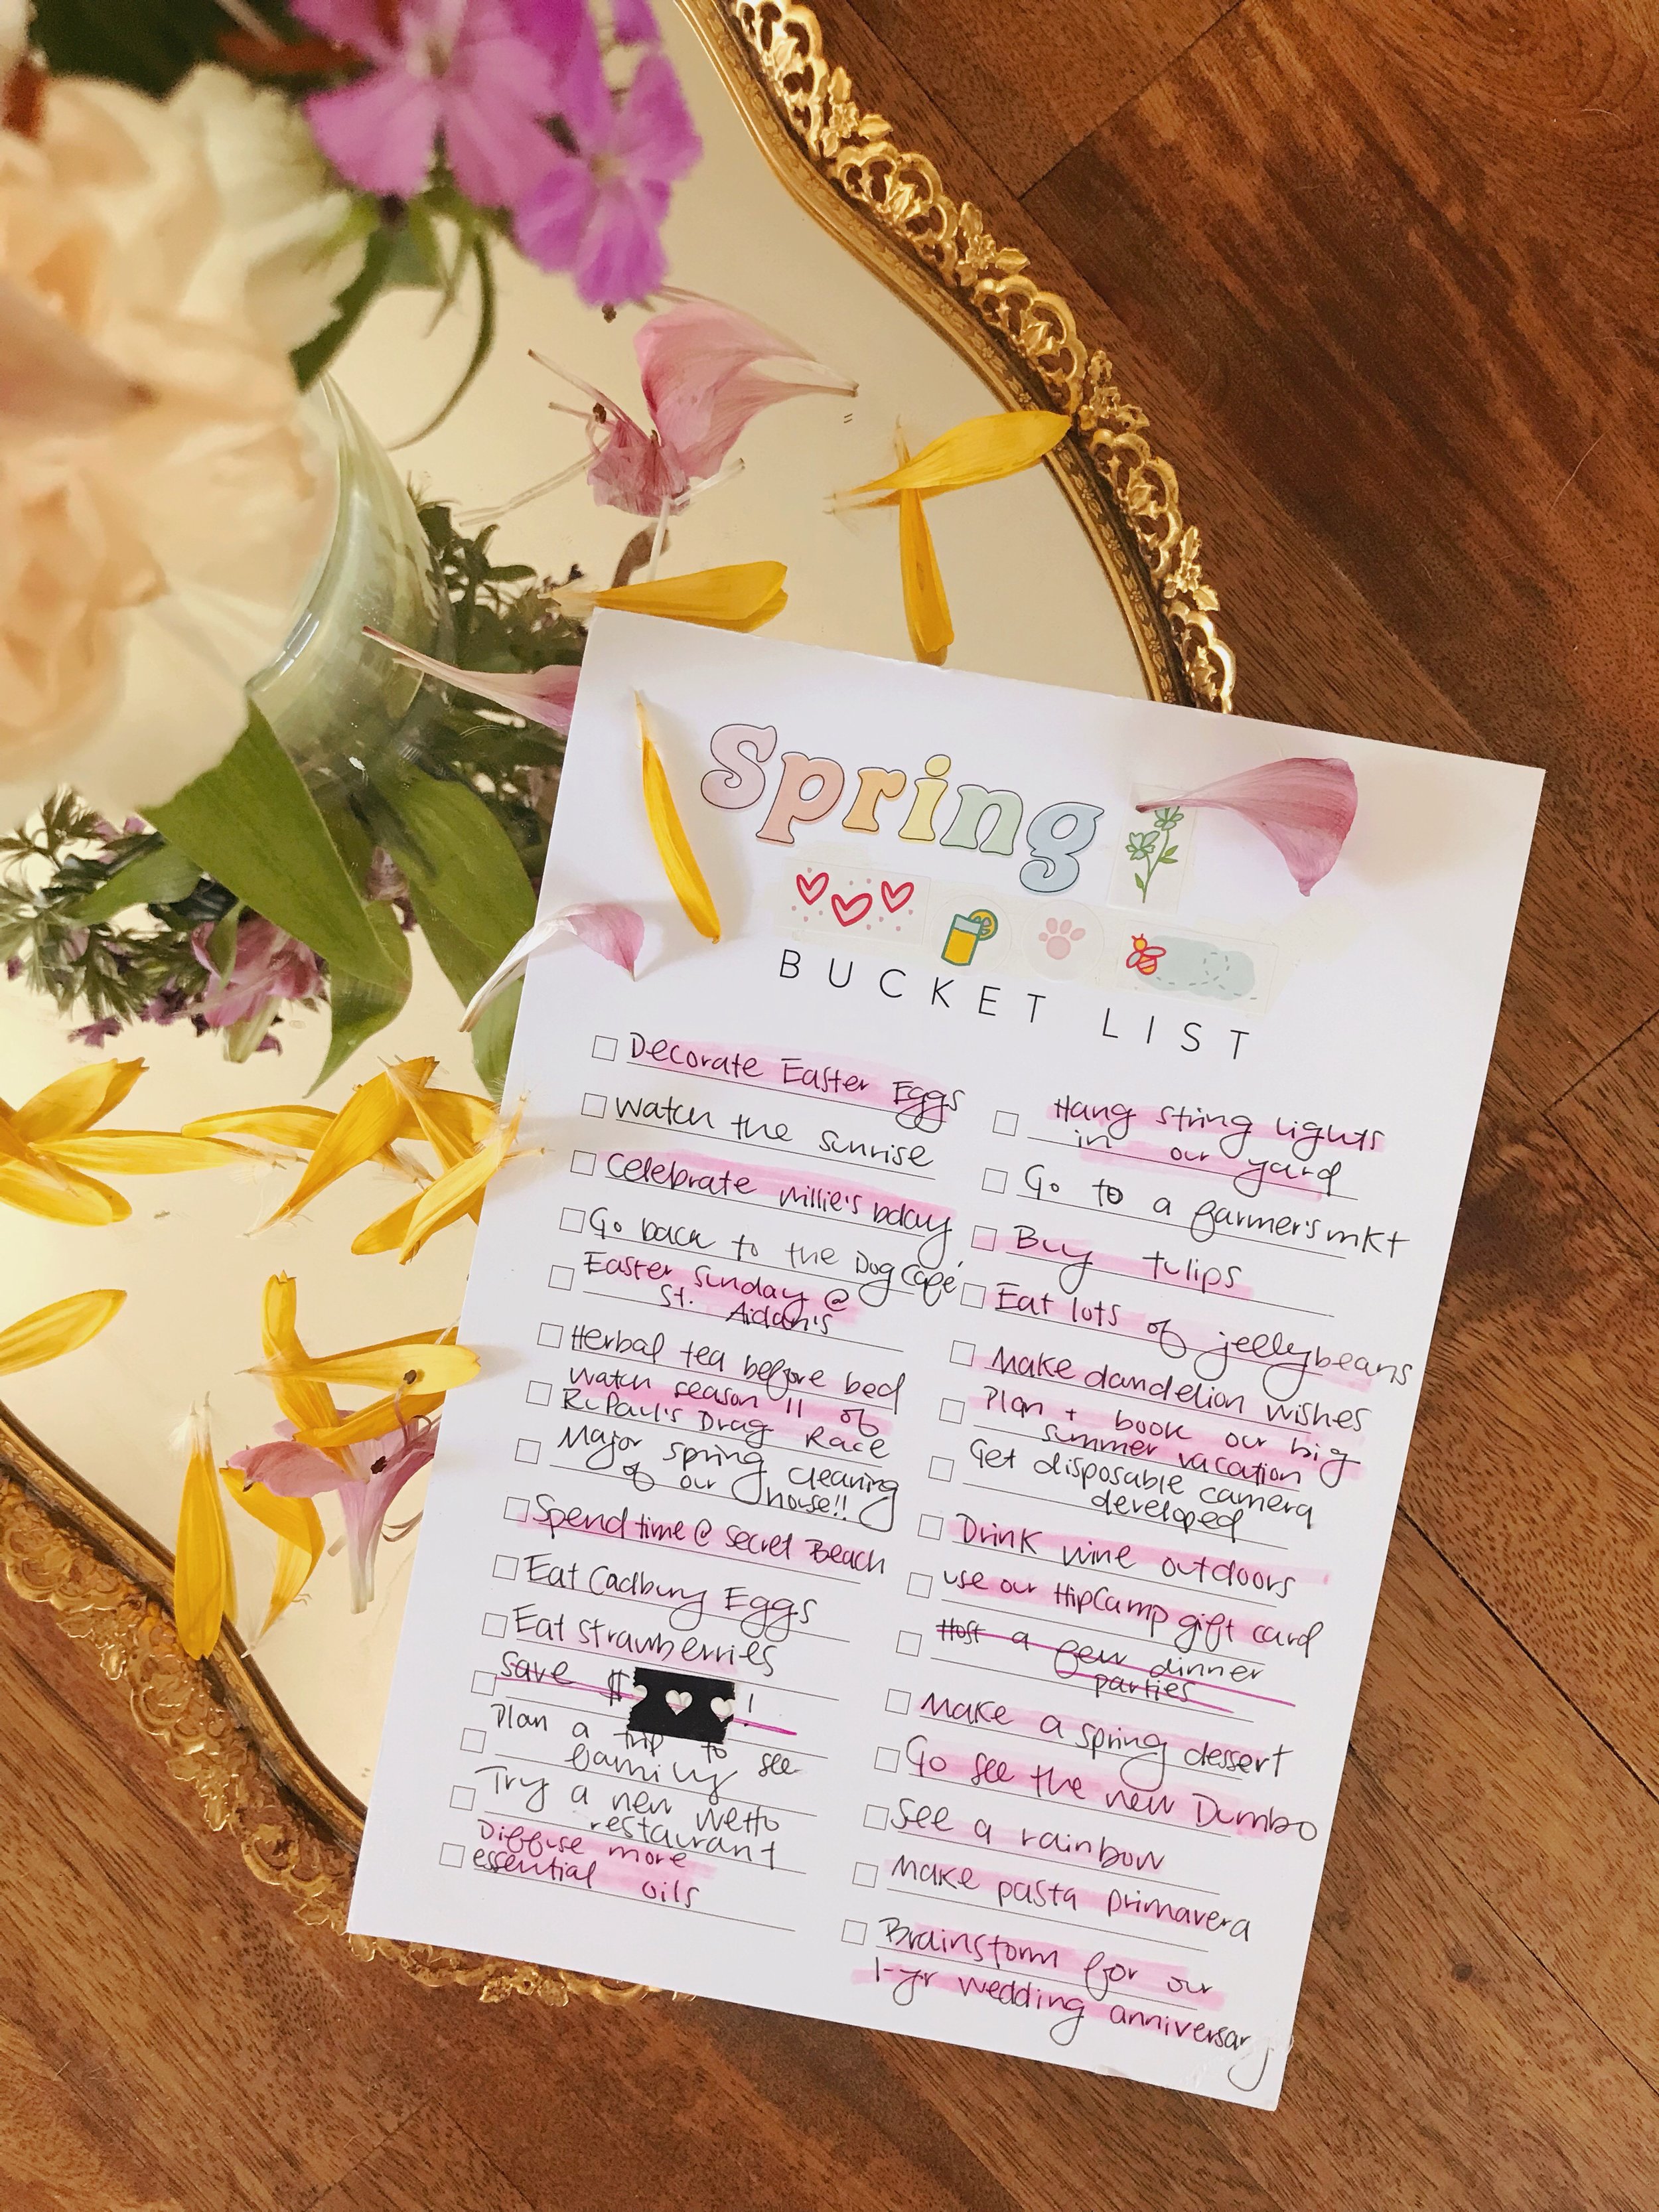 Spring
BUCKET LIST
Decorate Easter Eggs
Watch the sunrise
Celebrate Millie's bday
Go back to the Dog Café
Easter Sunday @
St. Aidan's
Herbal tea before bed
Watch season 11 of
RuPaul's Drag Race
Major spring cleaning
of our house!!
Spend time @ Secret Beach
Eat Cadbury Eggs
Eat strawberries
Save $ !
Plan a trip to see
family
Try a new
restaurant
Diffuse more
essential oils
Hang string lights
in our yard
Go to a farmer's mkt
Buy tulips
Eat lots of jellybeans
Make dandelion wishes
Plan + book our big
summer vacation
Get disposable camera
developed
Drink wine outdoors
Use our HipCamp gift card
Host a few dinner
parties
Make a spring dessert
Go see the new Dumbo
See a rainbow
Make pasta primavera
Brainstorm for our
1-yr wedding anniversary